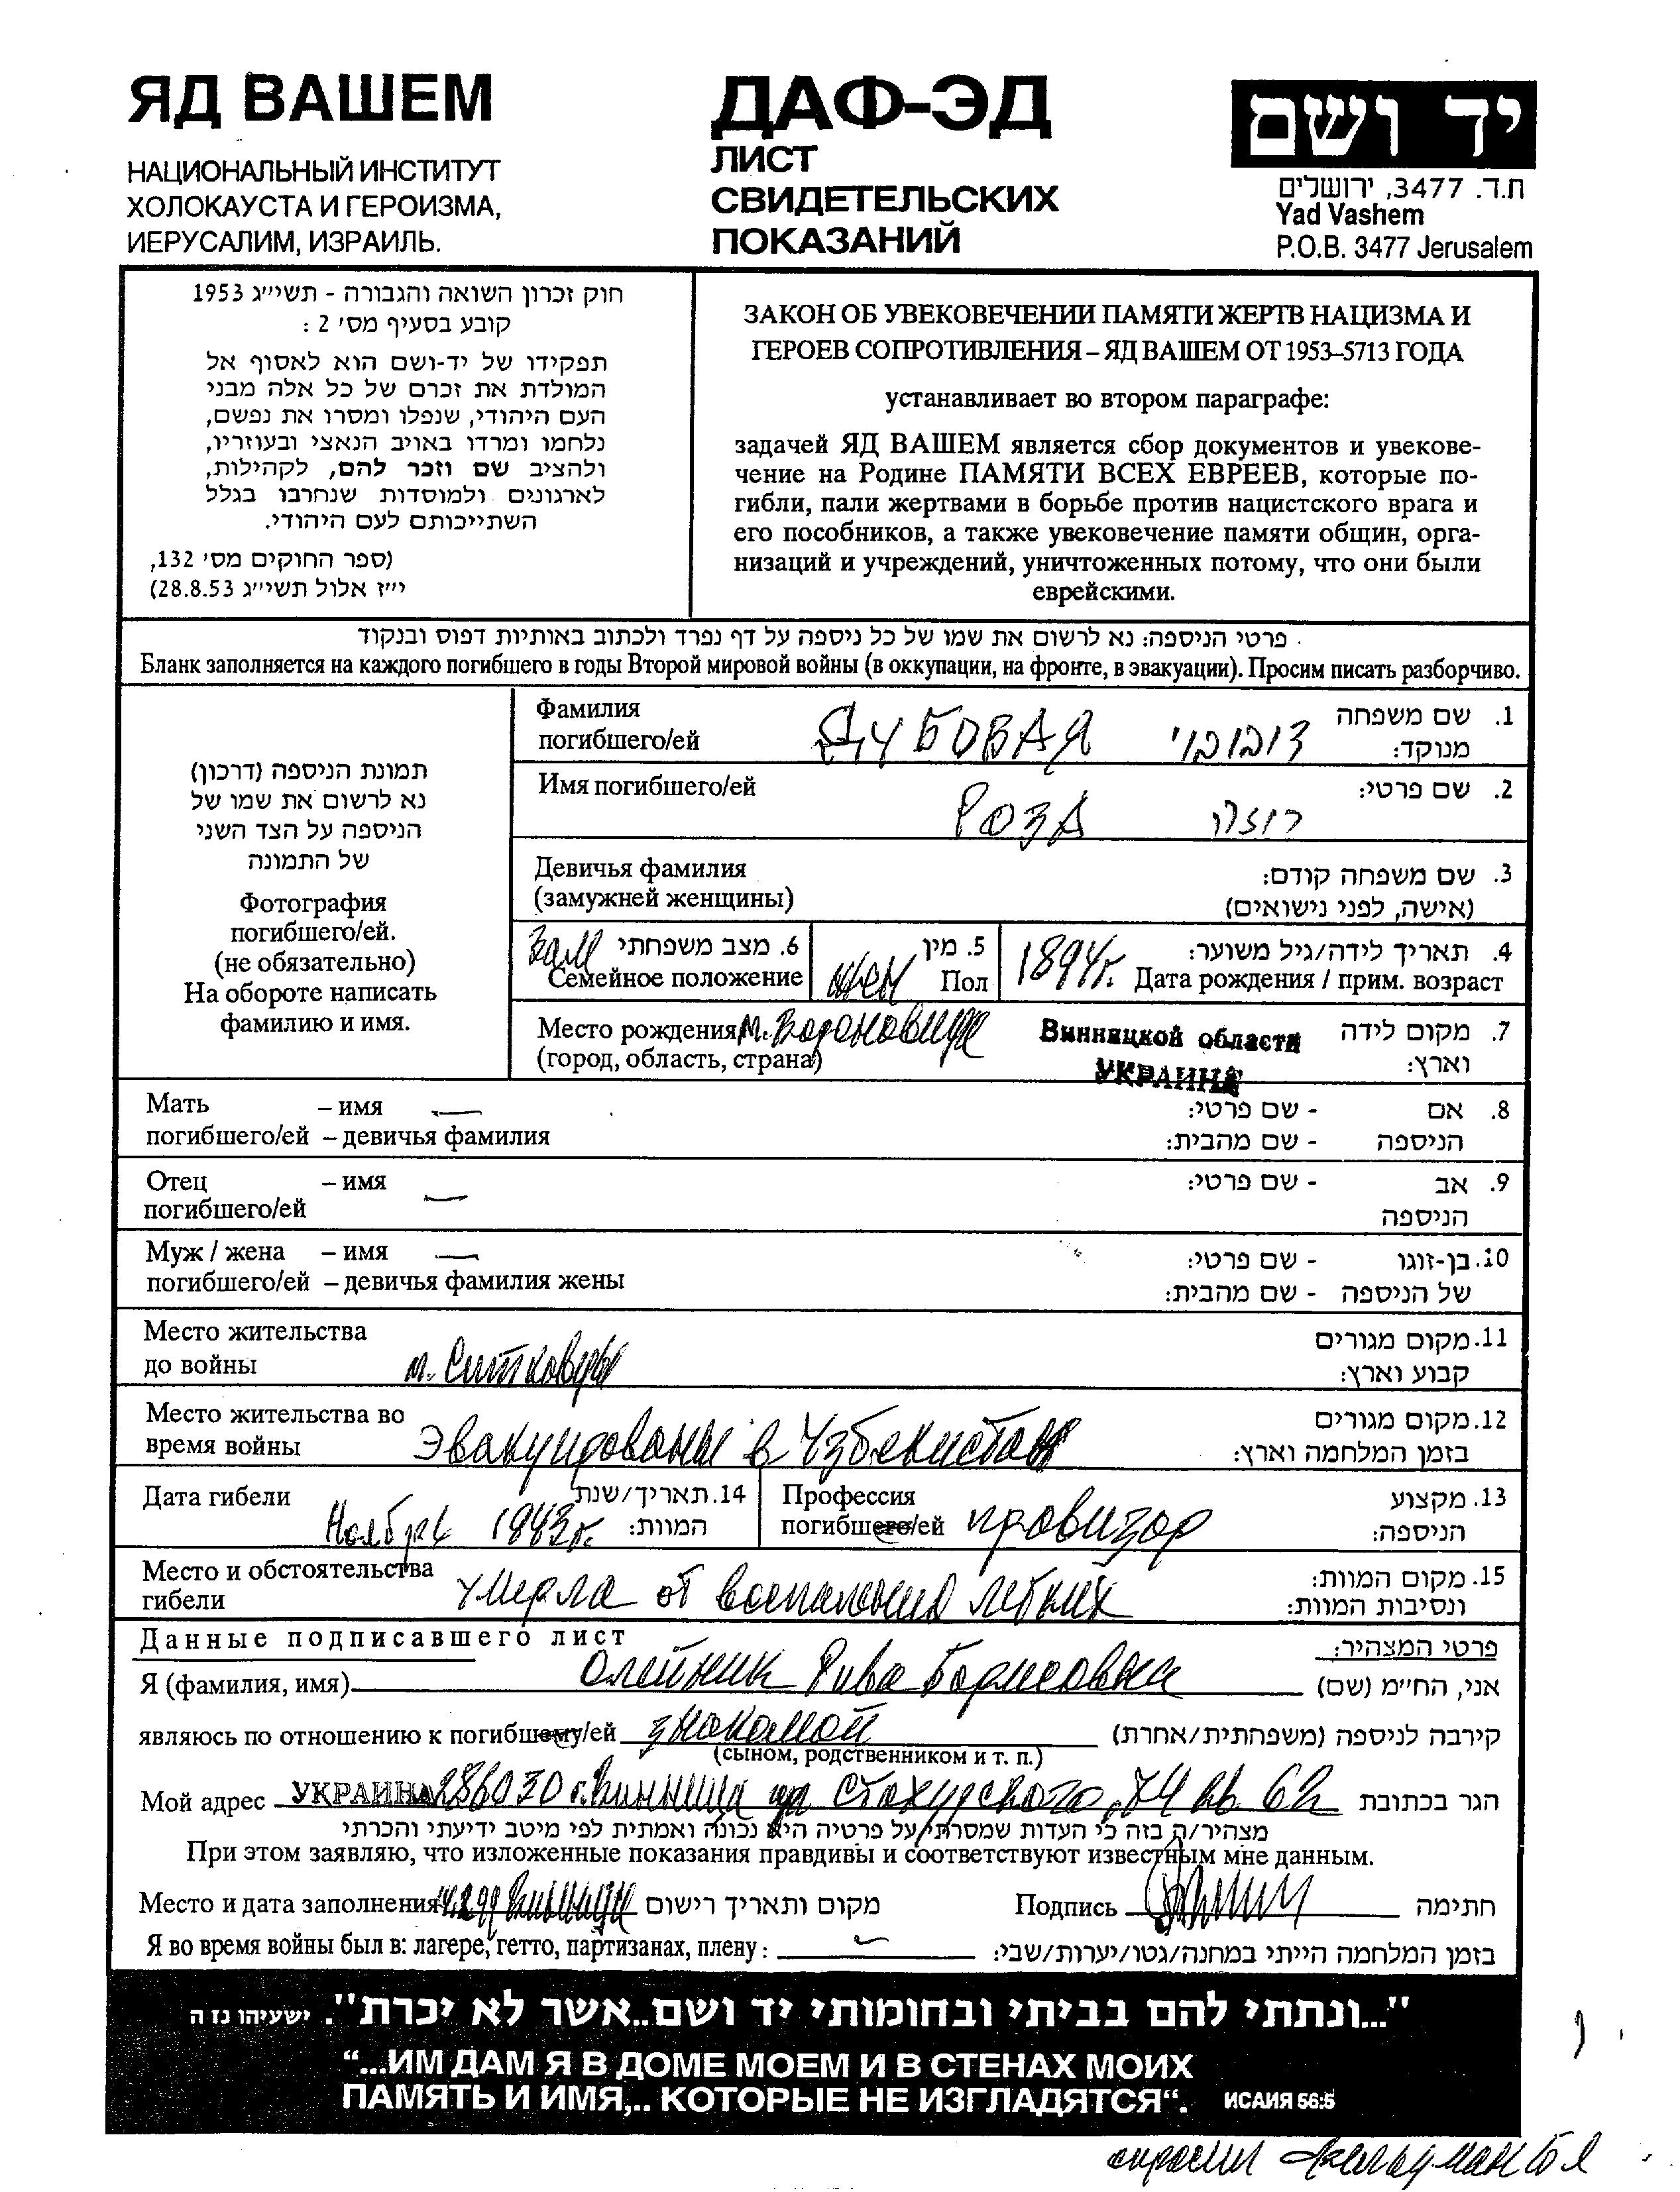 ЯД ВАШЕМ
НАЦИОНАЛЬНЫЙ ИНСТИТУТ
ХОЛОКАУСТА И ГЕРОИЗМА,
ИЕРУСАЛИМ, ИЗРАИЛЬ.
ДАФ-ЭД
ЛИСТ
СВИДЕТЕЛЬСКИХ
ПОКАЗАНИЙ
יד ושם
ת.ד. 3477, ירושלים
Yad Vashem
P.O.B. 3477 Jerusalem
חוק זכרון השואה והגבורה - תשי״ג 1953
קובע בסעיף מס׳ 2 :
תפקידו של יד-ושם הוא לאסוף אל
המולדת את זכרם של כל אלה מבני
העם היהודי, שנפלו ומסרו את נפשם,
נלחמו ומרדו באויב הנאצי ובעוזריו,
ולהציב שם וזכר להם, לקהילות,
לארגונים ולמוסדות שנחרבו בגלל
השתייכותם לעם היהודי.
(ספר החוקים מס׳ 132,
י״ז אלול תשי״ג 28.8.53)
ЗАКОН ОБ УВЕКОВЕЧЕНИИ ПАМЯТИ ЖЕРТВ НАЦИЗМА И
ГЕРОЕВ СОПРОТИВЛЕНИЯ – ЯД ВАШЕМ ОТ 1953–5713 ГОДА
устанавливает во втором параграфе:
задачей ЯД ВАШЕМ является сбор документов и увекове-
чение на Родине ПАМЯТИ ВСЕХ ЕВРЕЕВ, которые по-
гибли, пали жертвами в борьбе против нацистского врага и
его пособников, а также увековечение памяти общин, орга-
низаций и учреждений, уничтоженных потому, что они были
еврейскими.
פרטי הניספה: נא לרשום את שמו של כל ניספה על דף נפרד ולכתוב באותיות דפוס ובנקוד
Бланк заполняется на каждого погибшего в годы Второй мировой войны (в оккупации, на фронте, в эвакуации). Просим писать разборчиво.
תמונת הניספה (דרכון)
נא לרשום את שמו של
הניספה על הצד השני
של התמונה
Фотография
погибшего/ей.
(не обязательно)
На обороте написать
фамилию и имя.
Фамилия ДУБОВАЯ דובובוי 1. שם משפחה
погибшего/ей מנוקד:
Имя погибшего/ей РОЗА רוזה 2. שם פרטי:
Девичья фамилия 3. שם משפחה קודם:
(замужней женщины) (אישה, לפני נישואים)
Зам 6. מצב משפחתי 5. מין 4. תאריך לידה/גיל משוער:
Семейное положение жен Пол 1894г. Дата рождения / прим. возраст
Место рождения м. Вороновица Винницкой области 7. מקום לידה
(город, область, страна) УКРАИНА וארץ:
Мать – имя — - שם פרטי: 8. אם
погибшего/ей – девичья фамилия - שם מהבית: הניספה
Отец – имя — - שם פרטי: 9. אב
погибшего/ей הניספה
Муж / жена – имя — - שם פרטי: 10. בן-זוגו
погибшего/ей – девичья фамилия жены - שם מהבית: של הניספה
Место жительства 11. מקום מגורים
до войны м. Ситковцы קבוע וארץ:
Место жительства во 12. מקום מגורים
время войны Эвакуированы в Узбекистан בזמן המלחמה וארץ:
Дата гибели 14. תאריך/שנת Профессия 13. מקצוע
Ноябрь 1943г. המוות: погибшего/ей провизор הניספה:
Место и обстоятельства 15. מקום המוות:
гибели умерла от воспаления легких ונסיבות המוות:
Данные подписавшего лист פרטי המצהיר:
Я (фамилия, имя) Олейник Рива Борисовна אני, הח״מ (שם)
являюсь по отношению к погибшему/ей знакомой קירבה לניספה (משפחתית/אחרת)
(сыном, родственником и т. п.)
Мой адрес УКРАИНА 286030 г. Винница ул Стахурского, 74 кв. 62 הגר בכתובת
מצהיר/ה בזה כי העדות שמסרתי על פרטיה היא נכונה ואמתית לפי מיטב ידיעתי והכרתי
При этом заявляю, что изложенные показания правдивы и соответствуют известным мне данным.
Место и дата заполнения Винница מקום ותאריך רישום Подпись חתימה
Я во время войны был в: лагере, гетто, партизанах, плену : בזמן המלחמה הייתי במחנה/גטו/יערות/שבי:
"...ונתתי להם בביתי ובחומותי יד ושם..אשר לא יכרת". ישעיהו נז ה
“...ИМ ДАМ Я В ДОМЕ МОЕМ И В СТЕНАХ МОИХ
ПАМЯТЬ И ИМЯ,.. КОТОРЫЕ НЕ ИЗГЛАДЯТСЯ“. ИСАИЯ 56:5
опросил